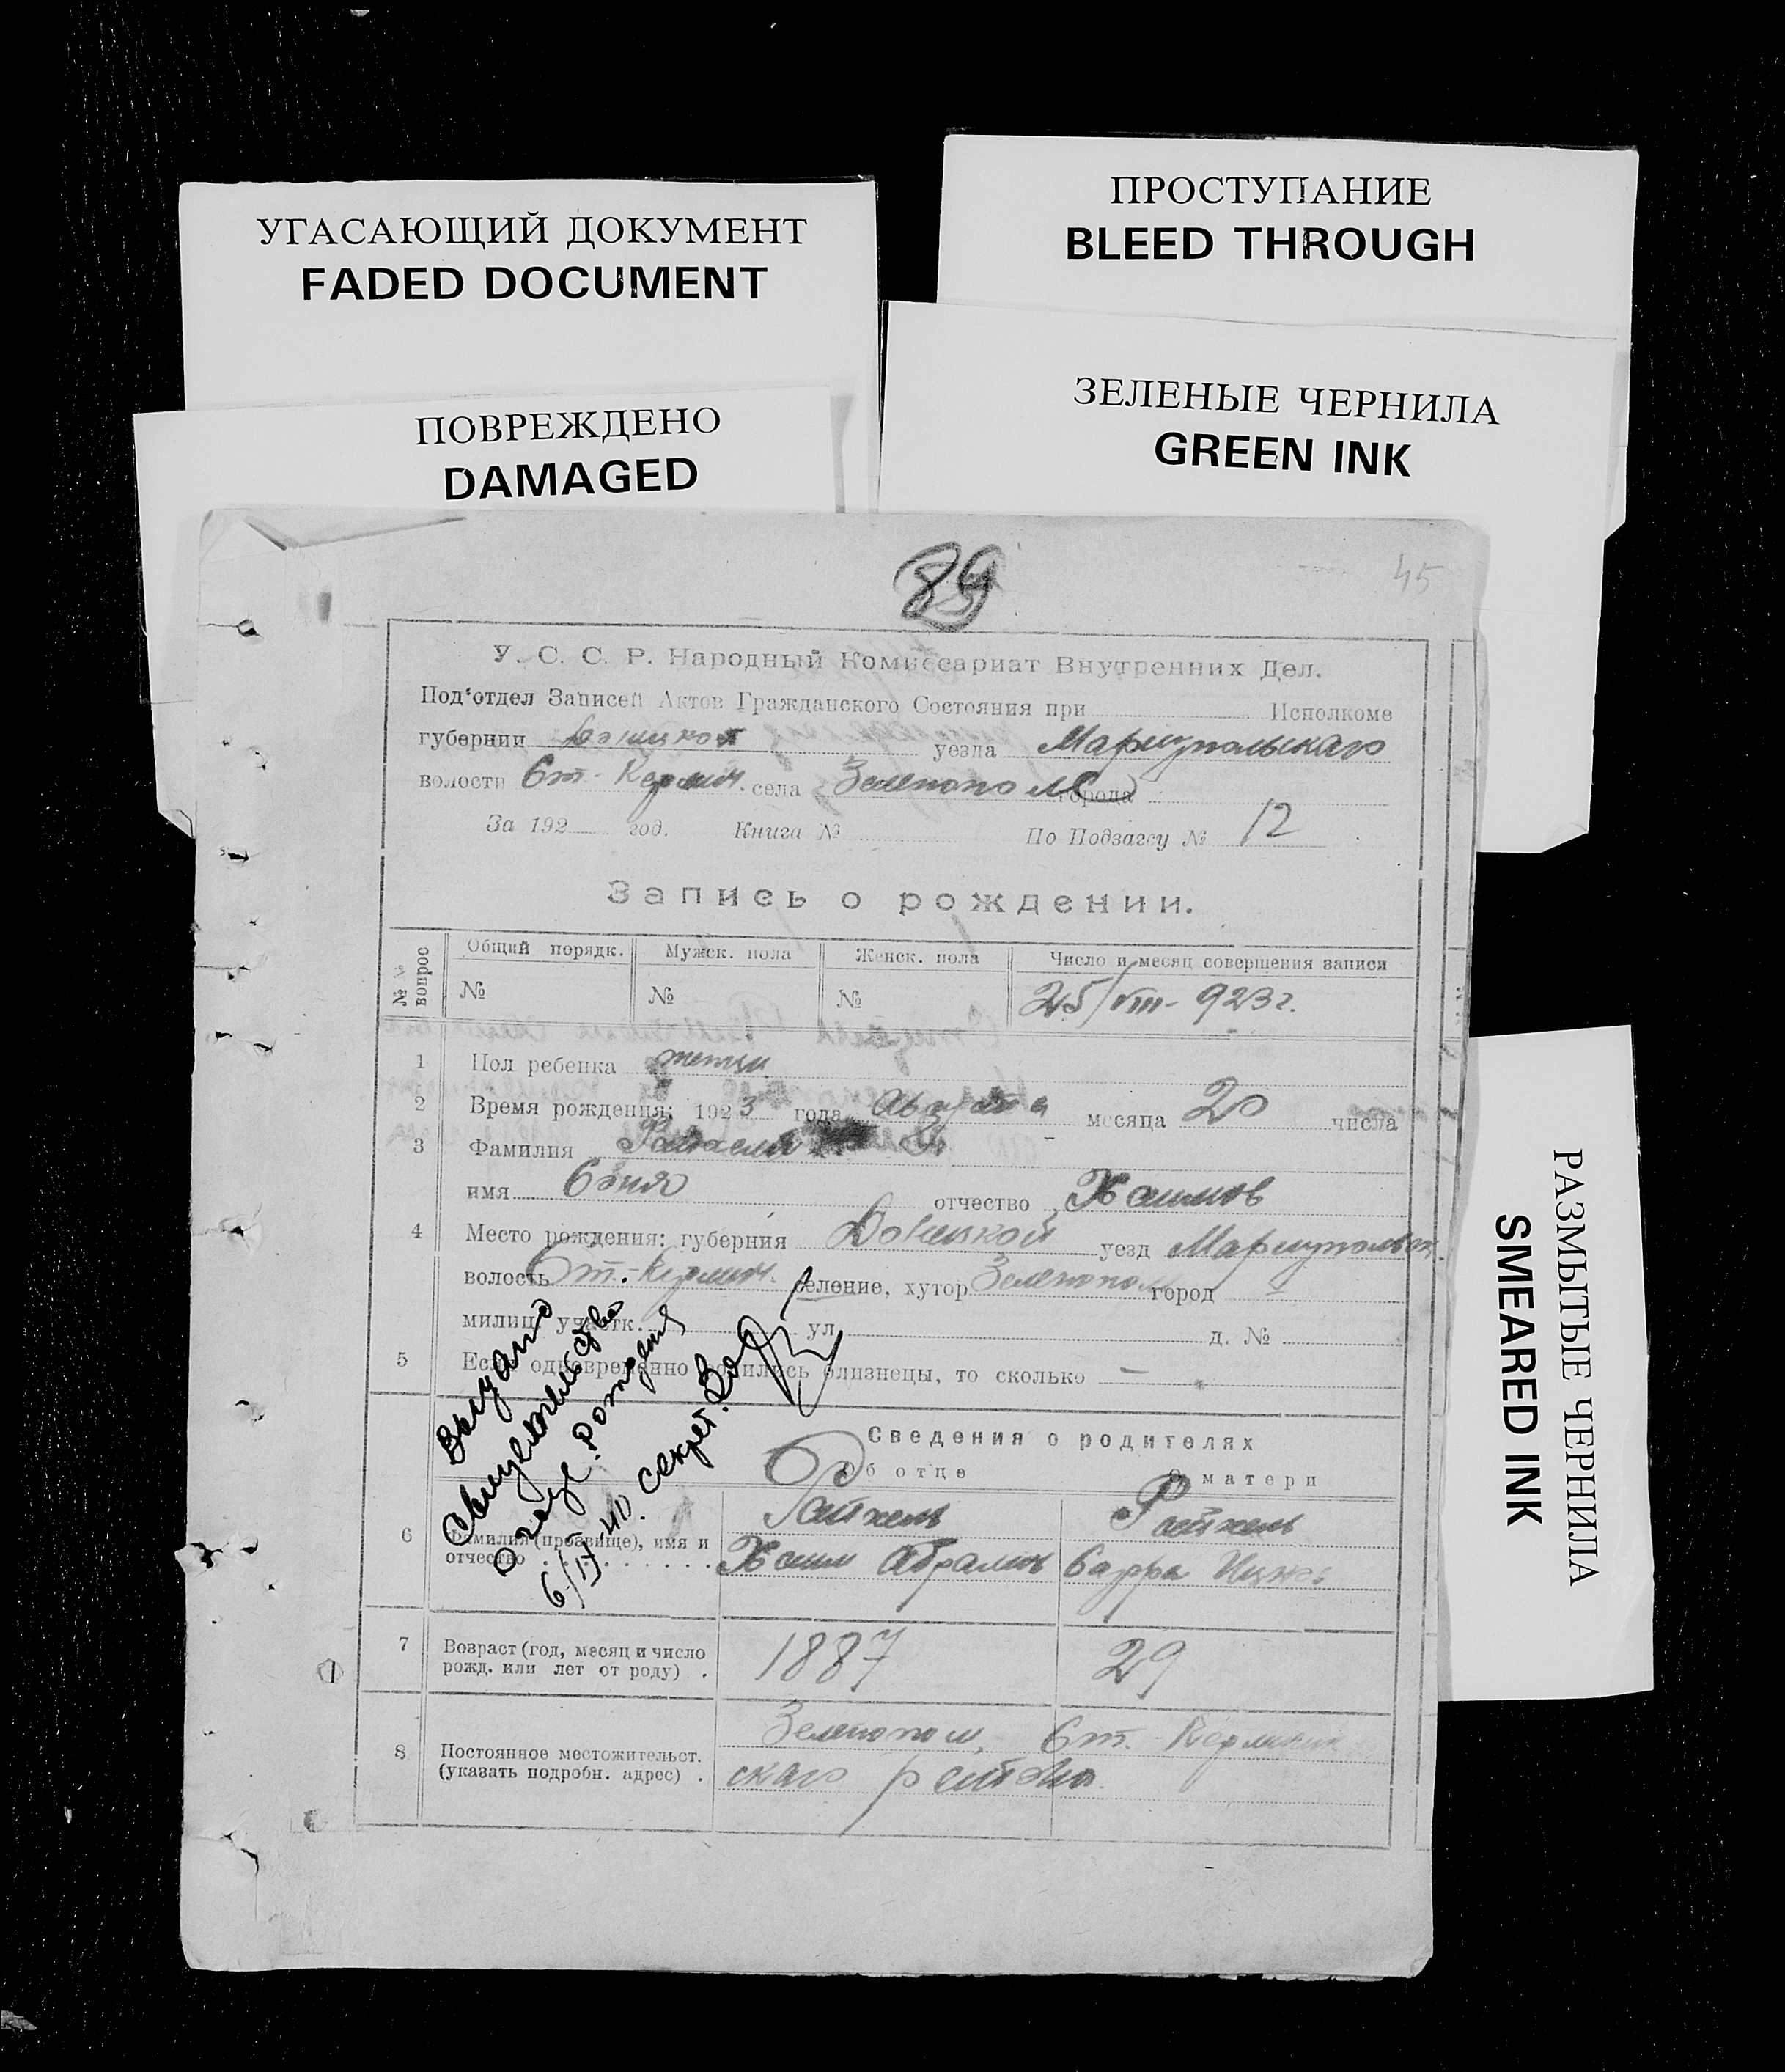 УГАСАЮЩИЙ ДОКУМЕНТ
FADED DOCUMENT
ПРОСТУПАНИЕ
BLEED THROUGH
ПОВРЕЖДЕНО
DAMAGED
ЗЕЛЕНЫЕ ЧЕРНИЛА
GREEN INK
89
45
У. С. С. Р. Народный Комиссариат Внутренних Дел.
Под‘отдел Записей Актов Гражданского Состояния при Исполкоме
губернии Донецкой уезда Мариупольскаго
волости Ст-Кермен. села Зеленопол города
За 192 год. Книга № По Подзагсу № 12
Запись о рождении.
№№ вопрос Общий порядк. Мужск. пола Женск. пола Число и месяц совершения записи
№ № № 25/VIII- 923 г.
1 Пол ребенка
2 Время рождения: 1923 года Августа месяца 20 числа
3 Фамилия
имя Соня отчество Хаимов
4 Место рождения: губерния Донецкой уезд Мариупольск.
волость Ст.-Кермен. селение, хутор Зеленопол город
милиц. участк. ул. д. №
5 Если одновременно родились близнецы, то сколько —
Выдано
свидетельство
о рождения
6/IV 40. секрет.
Сведения о родителях
Об отце О матери
6 Фамилия (прозвище), имя и отчество Райхель Райхель
Хаим Абрамов Сарра
7 Возраст (год, месяц и число рожд. или лет от роду) 1887 29
8 Постоянное местожительст. (указать подробн. адрес) Зеленопол, Ст. Керменчик
скаго района.
РАЗМЫТЫЕ ЧЕРНИЛА
SMEARED INK